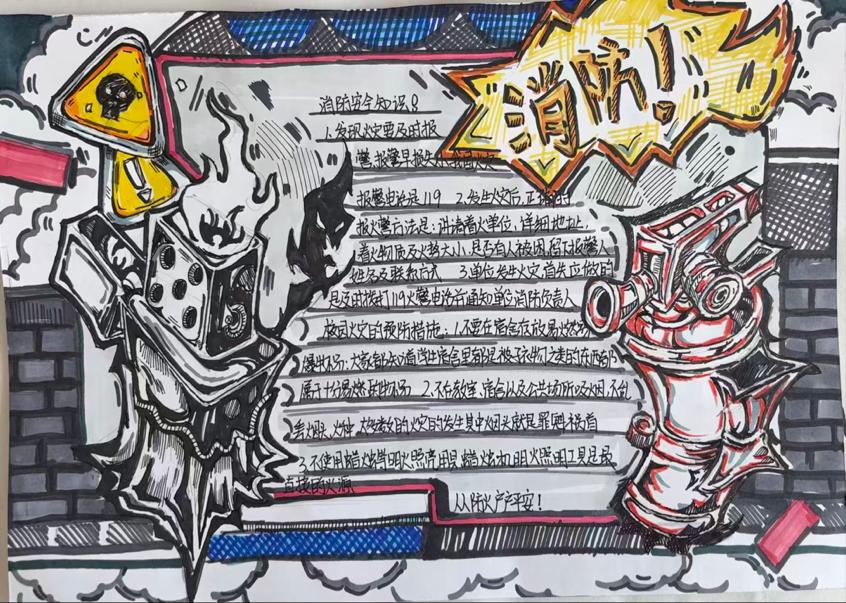 消防!
消防安全知识
1.发现火灾要及时报
警,报警早损失
报警电话是119 2.发生火灾后,正确的
报火警方法是:讲清着火单位,详细地址,
着火物质及火势大小,是否有人被困,留下报警人
姓名及联系方式 3.单位发生火灾,首先应做的
是及时拨打119火警电话后通知单位消防负责人
校园火灾的预防措施:1.不要在宿舍存放易燃
爆物品:大家都知道学生宿舍里都是被、衣物之类的东西都
属于十分易燃物品 2.不在教室,宿舍以及公共场所吸烟,不乱
丢烟头、火种,大多数的火灾的发生其中烟头就是罪魁祸首
3.不使用蜡烛等明火照亮用具,蜡烛和明火照明工具是最
直接的火源
人人防火户户平安!